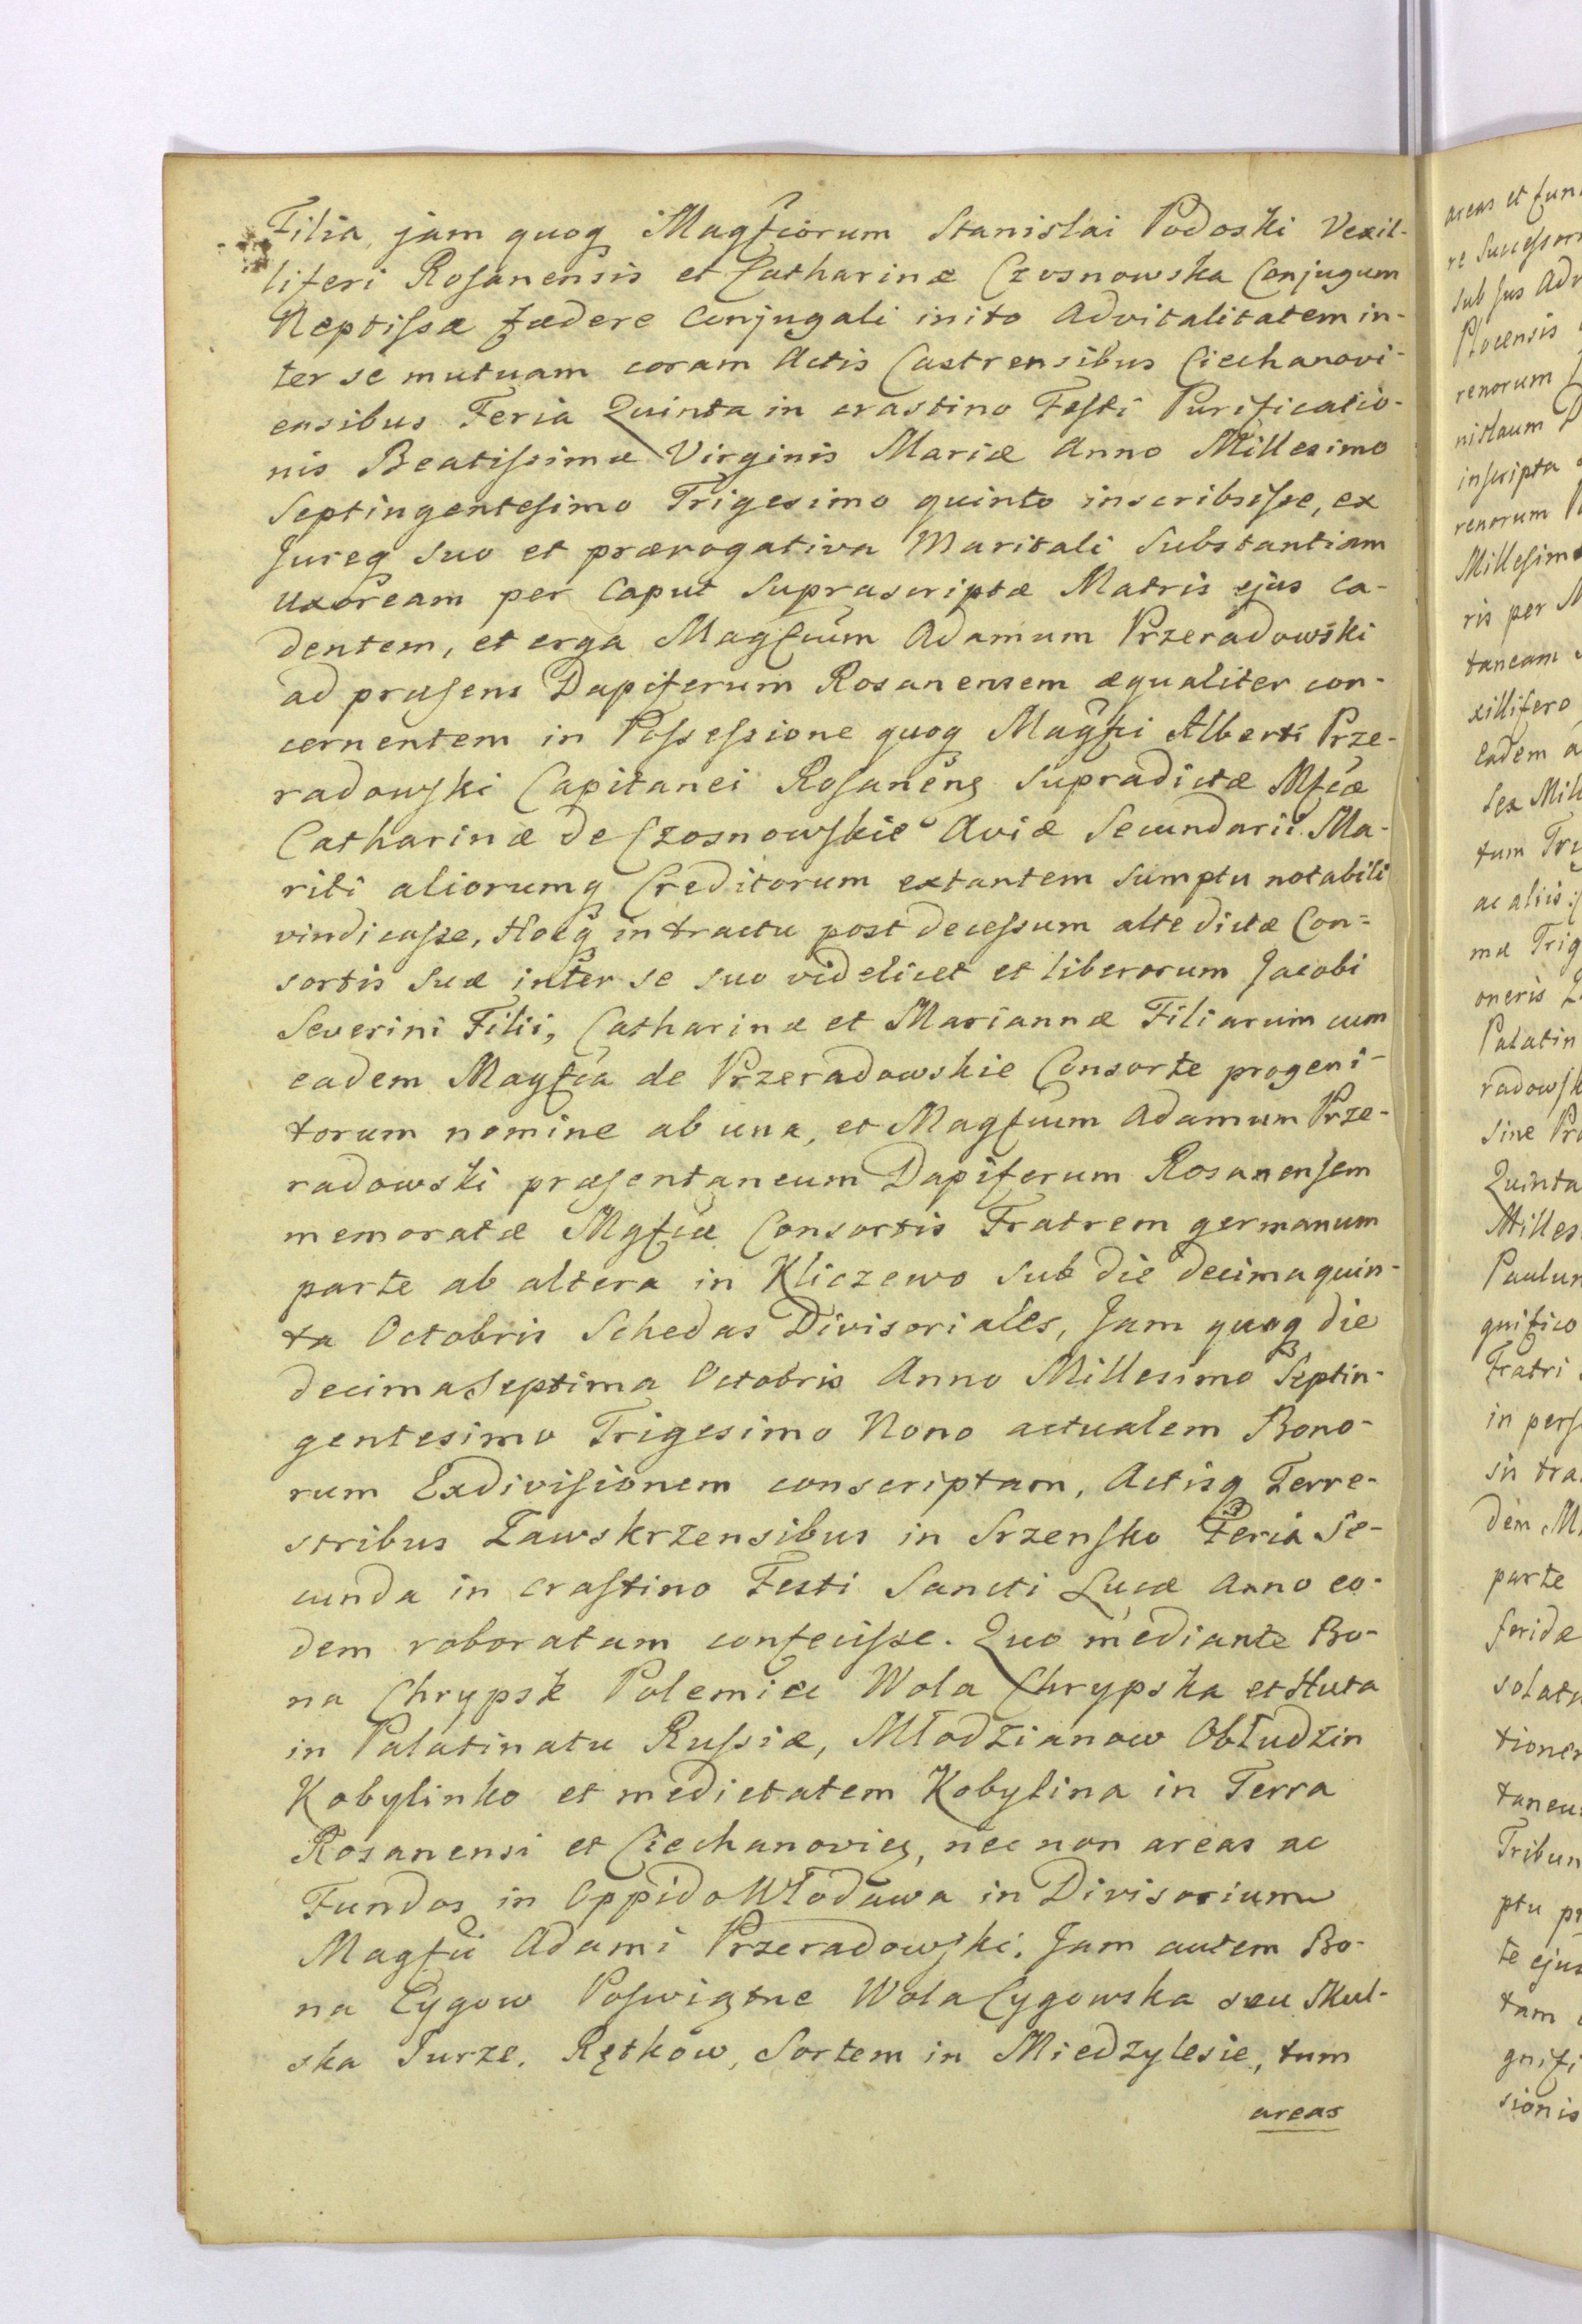 Filia, jam quoq Magfciorum Stanislai Podoski Vexil-
liferi Rosanensis et Catharinæ Czosnowska Conjugum
Neptissæ fædere Conjugali inito Advitalitatem in-
ter se mutuam coram Actis Castrensibus Ciechanovi-
ensibus Feria Quinta in crastino Festi Purificatio-
nis Beatissimæ Virginis Mariæ Anno Millesimo
Septingentesimo Trigesimo quinto inscribsisse, ex
Jureq suo et prærogativa Maritali Substantiam
Uxoream per Caput Suprascriptæ Matris ejus ca-
dentem, et erga Magfcum Adamum Przeradowski
ad præsens Dapiferum Rosanensem æqualiter con-
cernentem in Possessione quoq Magfci Alberti Prze-
radowski Capitanei Rosanens supradictæ Mfcæ
Catharinæ de Czosnowskie Aviæ Secundarii Ma-
riti aliorumq Creditorum extantem sumptu notabili
vindicasse, Hocq in tractu post decessum alte dictæ Con=
sortis suæ inter se suo videlicet et liberorum Jacobi
Severini Filii, Catharinæ et Mariannæ Filiarum cum
eadem Magfca de Przeradowskie Consorte progeni-
torum nomine ab una, et Magfcum Adamum Prze-
radowski præsentaneum Dapiferum Rosanensem
memoratæ Mgfcæ Consortis Fratrem germanum
parte ab altera in Kliczewo sub die decima quin-
ta Octobris Schedas Divisoriales, Jam quoq die
decima Septima Octobris Anno Millesimo Septin-
gentesimo Trigesimo Nono actualem Bono-
rum Exdivisionem conscriptam, Actisq Terre-
stribus Zawskrzensibus in Srzensko Feria Se-
cunda in crastino Festi Sancti Lucæ Anno eo-
dem roboratam confecisse. Quo mediante Bo-
na Chrypsk Polemice Wola Chrypska et Huta
in Palatinatu Russiæ, Młodzianow Obłudzin
Kobylinko et medietatem Kobylina in Terra
Rosanensi et Ciechanovien, nec non areas ac
Fundos in Oppido Włodawa in Divisorium
Magfci Adami Przeradowski. Jam autem Bo-
na Cygow Poswiętne Wola Cygowska seu Skul-
ska Turze, Rętków, Sortem in Miedzylesie, tum
areas
areas et fun
re Successor
sub Jus Adv
Plocensis
renorum
nislaum P
inscripta
renorum
Millesimo
ris per M
taneam
xillifero
eadem a
sex Mill
tum Tri
ac aliis
ma Trig
oneris
Palatin
radowsk
sine Pro
Quinta
Milles
Paulum
gnifico
Fratri
in pers
in tra
dem M
parte
feridæ
solat
tionem
taneu
Tribun
ptu pr
te ejus
tam
gnifi
sionis